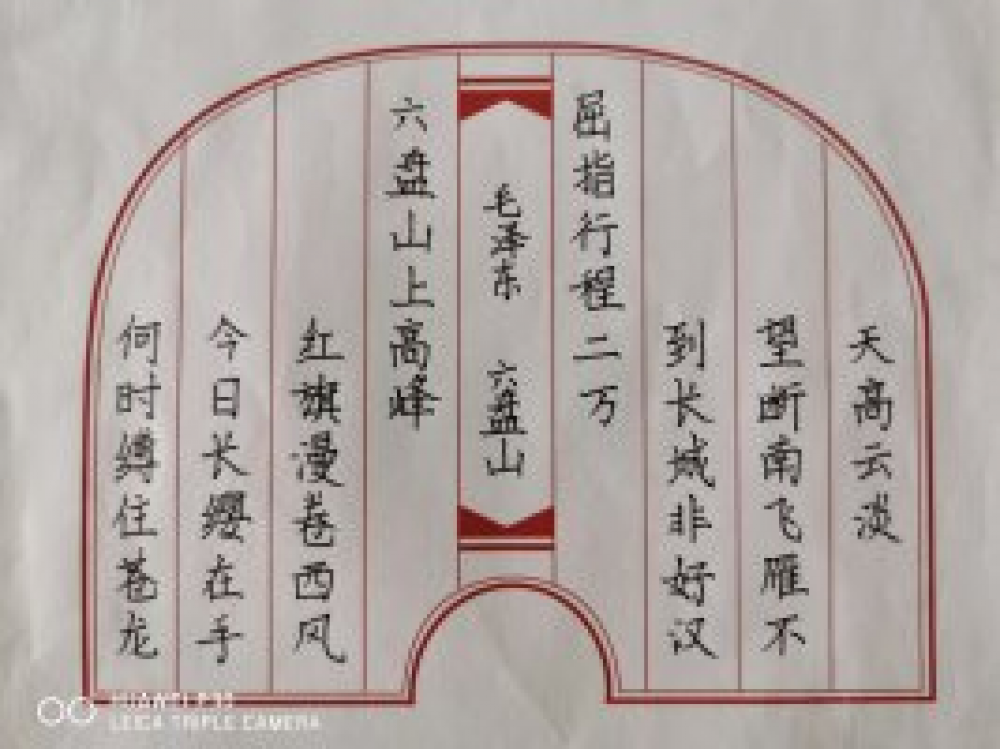 天高云淡
望断南飞雁不
到长城非好汉
屈指行程二万
毛泽东 六盘山
六盘山上高峰
红旗漫卷西风
今日长缨在手
何时缚住苍龙
HUAWEI P30
LEICA TRIPLE CAMERA